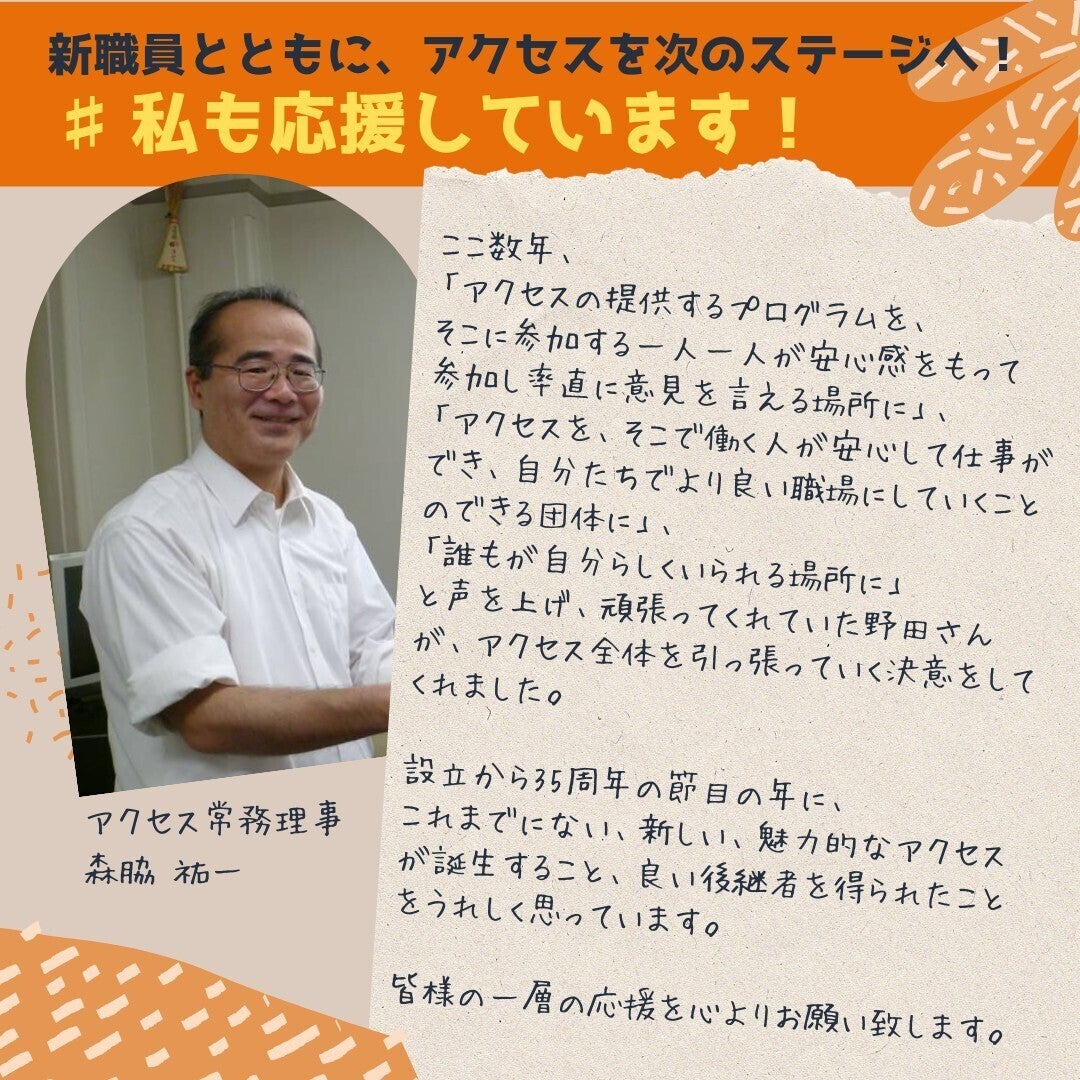 新職員とともに、アクセスを次のステージへ！
＃私も応援しています！
ここ数年、
「アクセスの提供するプログラムを、
そこに参加する一人一人が安心感をもって
参加し率直に意見を言える場所に」、
「アクセスを、そこで働く人が安心して仕事が
でき、自分たちでより良い職場にしていくこと
のできる団体に」、
「誰もが自分らしくいられる場所に」
と声を上げ、頑張ってくれていた野田さん
が、アクセス全体を引っ張っていく決意をして
くれました。
設立から35周年の節目の年に、
これまでにない、新しい、魅力的なアクセス
が誕生すること、良い後継者を得られたこと
をうれしく思っています。
皆様の一層の応援を心よりお願い致します。
アクセス常務理事
森脇 祐一